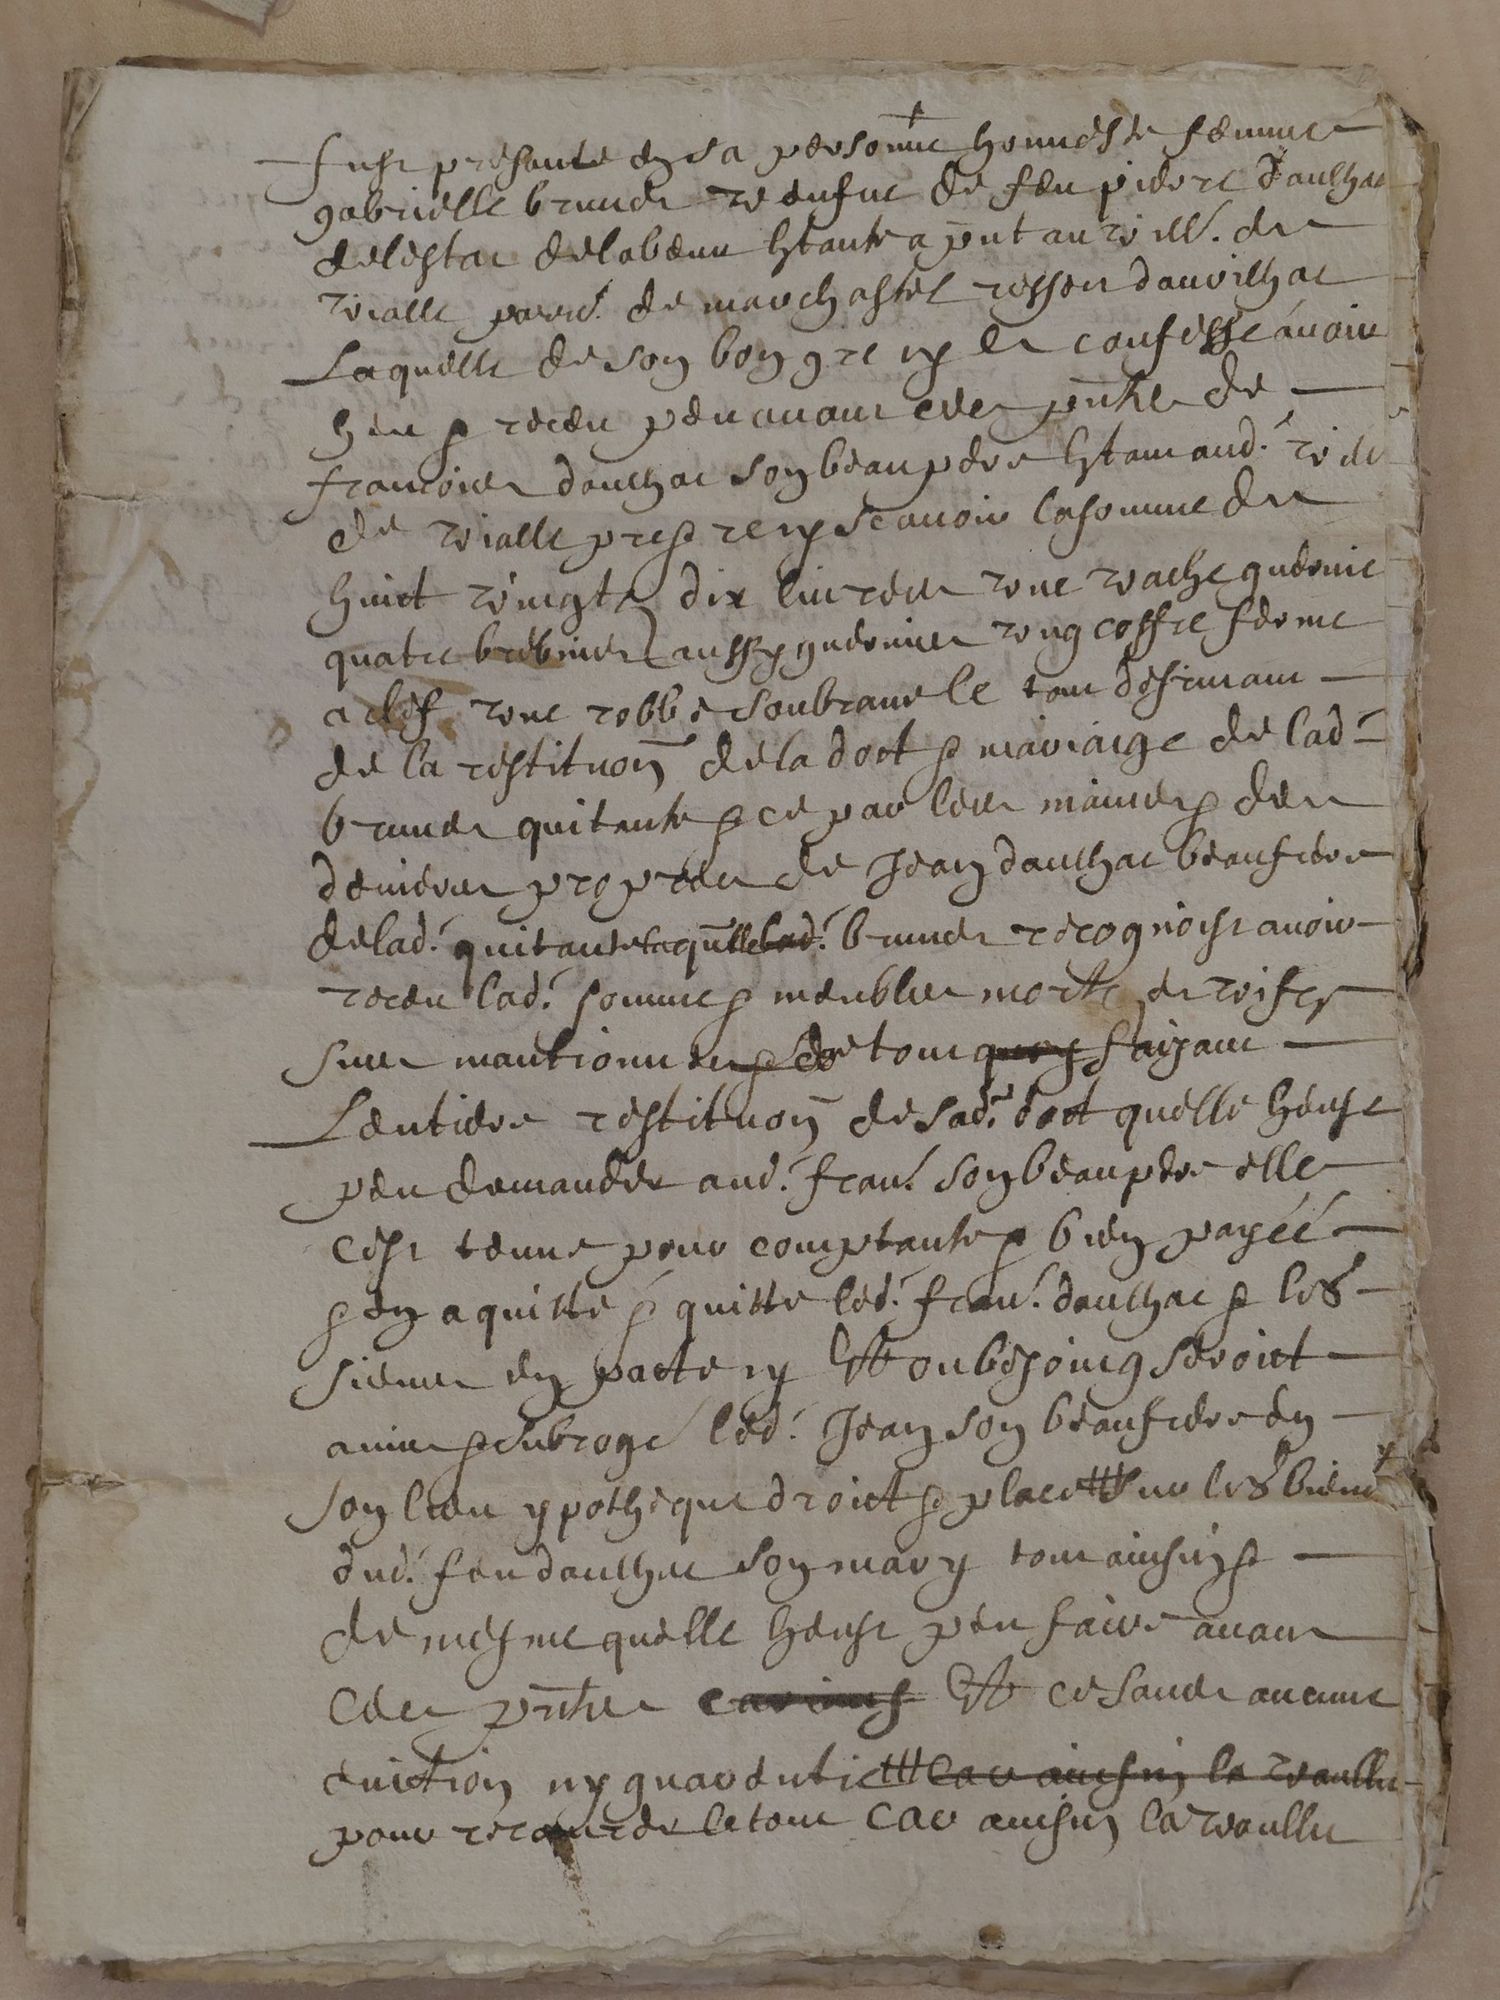 fust presante en sa personne honneste femme
gabrielle brunes veufve de feu pierre daulhac
delestac delabeau hitante a pnt au vill. de
vialle parr. de marchastel ressort daurilhac
Laquelle de son bon gre ny er confesse avoir
heu & receu peu avant ces pntes de
francois daulhac son beau pere hitant aud. vil
de vialle pres & rey scavoir la somme de
huict vingtz dix livres une vache guernie
quatre brebies aussy guernies ung coffre ferme
a clef une robbe soubrane le tout desirnant
de la restituon de la doct & mariaige de lad.
brunes quitante & ce par les mains & des
deniers propres de Jean daulhac beaufrere
delad. quitante laqulle lad. brunes recognoist avoir
receu lad. somme & meubles mortz et vifz
sus mantionnes & de tout quoy faizant
Lentiere restituon de sad. doct quelle heust
peu demander aud. fran. son beau pere elle
cest tenue pour comptante & bien payéé
& en a quitte & quitte led. fran. daulhac & les
siens en pacte ny Et ou besoing seroict
a mis & subroge led. Jean son beaufrere en
son lieu ypotheque droict & place sur les biens
dud. feu daulhac son mary tout ainsin &
de mesme quelle heust peu faire avant
ces pntes car ains Et ce sans aucune
eviction ny guarentie car ainsin la voullu
pour recours de le tout Car ainsin la voullu